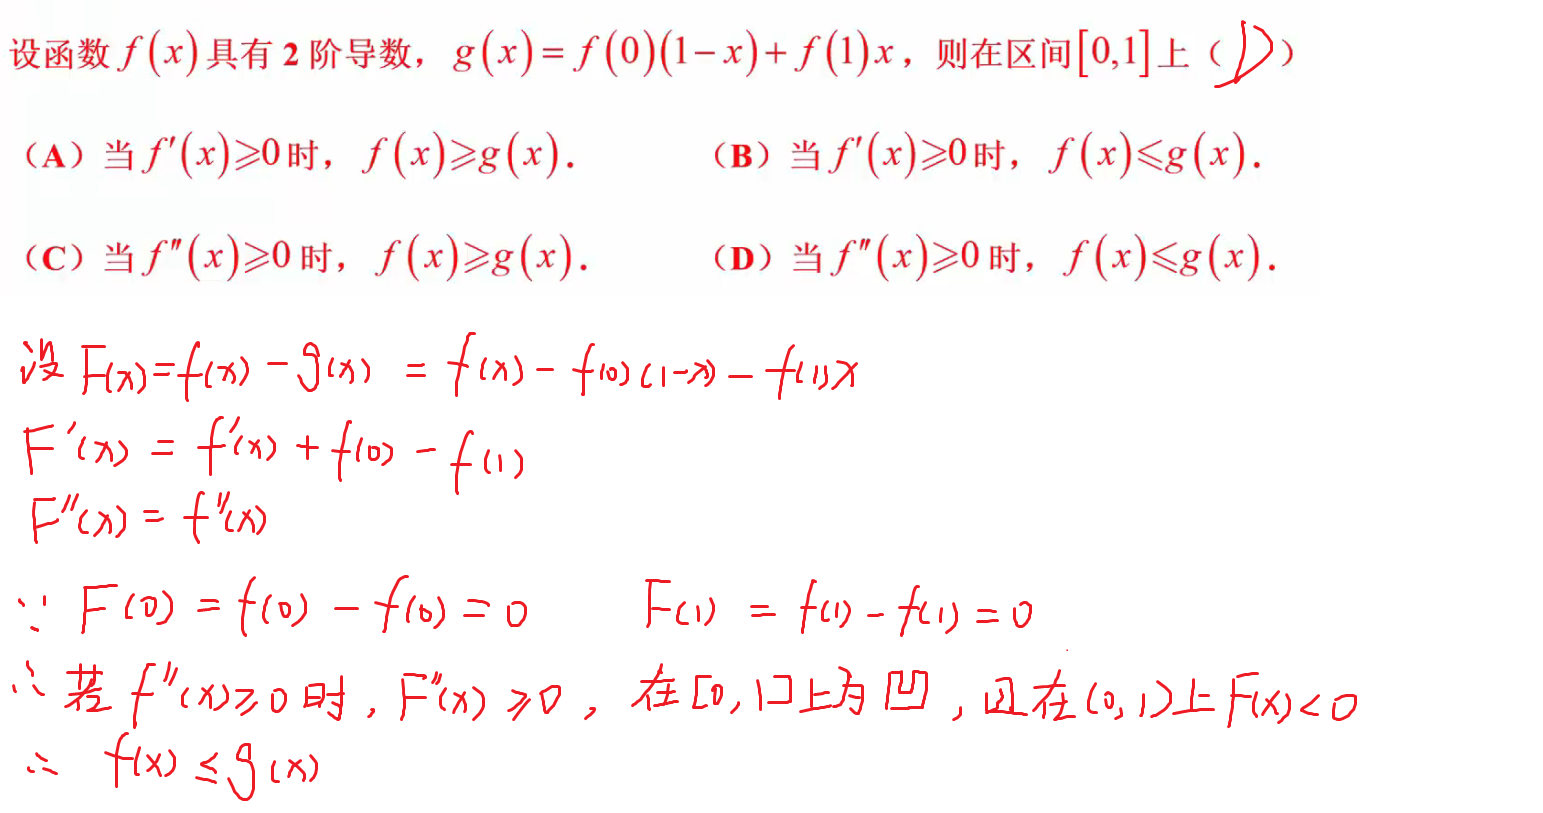 设函数 f(x) 具有 2 阶导数，g(x)=f(0)(1−x)+f(1)x，则在区间[0,1]上（D）
（A）当 f′(x)⩾0 时，f(x)⩾g(x)．　（B）当 f′(x)⩾0 时，f(x)⩽g(x)．
（C）当 f″(x)⩾0 时，f(x)⩾g(x)．　（D）当 f″(x)⩾0 时，f(x)⩽g(x)．
设 F(x)=f(x)−g(x) = f(x)−f(0)(1−x)−f(1)x
F′(x) = f′(x)+f(0)−f(1)
F″(x) = f″(x)
∵ F(0) = f(0)−f(0)=0　F(1) = f(1)−f(1)=0
∴ 若 f″(x)≥0 时，F″(x)≥0，在[0,1]上为凹，且在(0,1)上F(x)<0
∴ f(x)≤g(x)